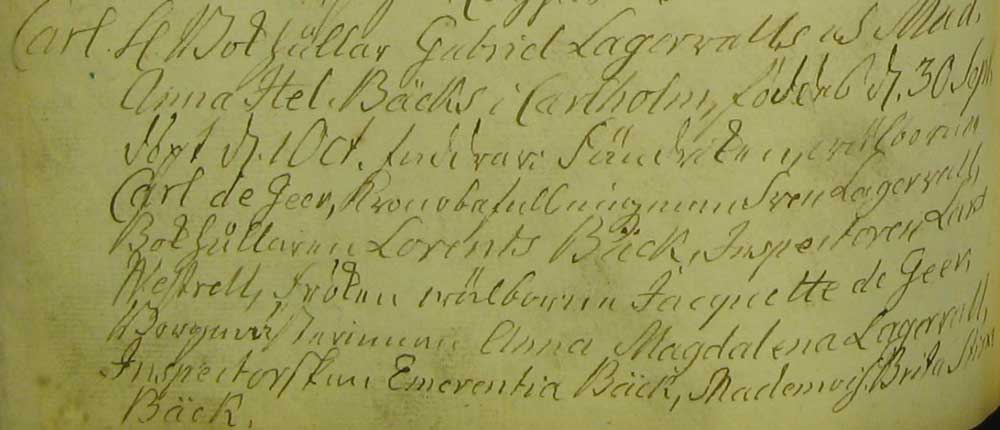 Carl. H Bokhållar Gabriel Lagerwalls och Mad.
Anna Hel. Bäcks i Carlholm, föddes d. 30 Sept
döpt d. 1 Oct. faddrar: Fändriken wälborne
Carl de Geer, Kronobefallningsman Sven Lagerwall,
Bokhållaren Lorents Bäck, Inspectoren Lars
Westrell, fröken wälborne Jacquette de Geer,
Borgmästarinnan Anna Magdalena Lagerwall,
Inspectorskan Emerentia Bäck, Mademois. Brita Stina
Bäck.